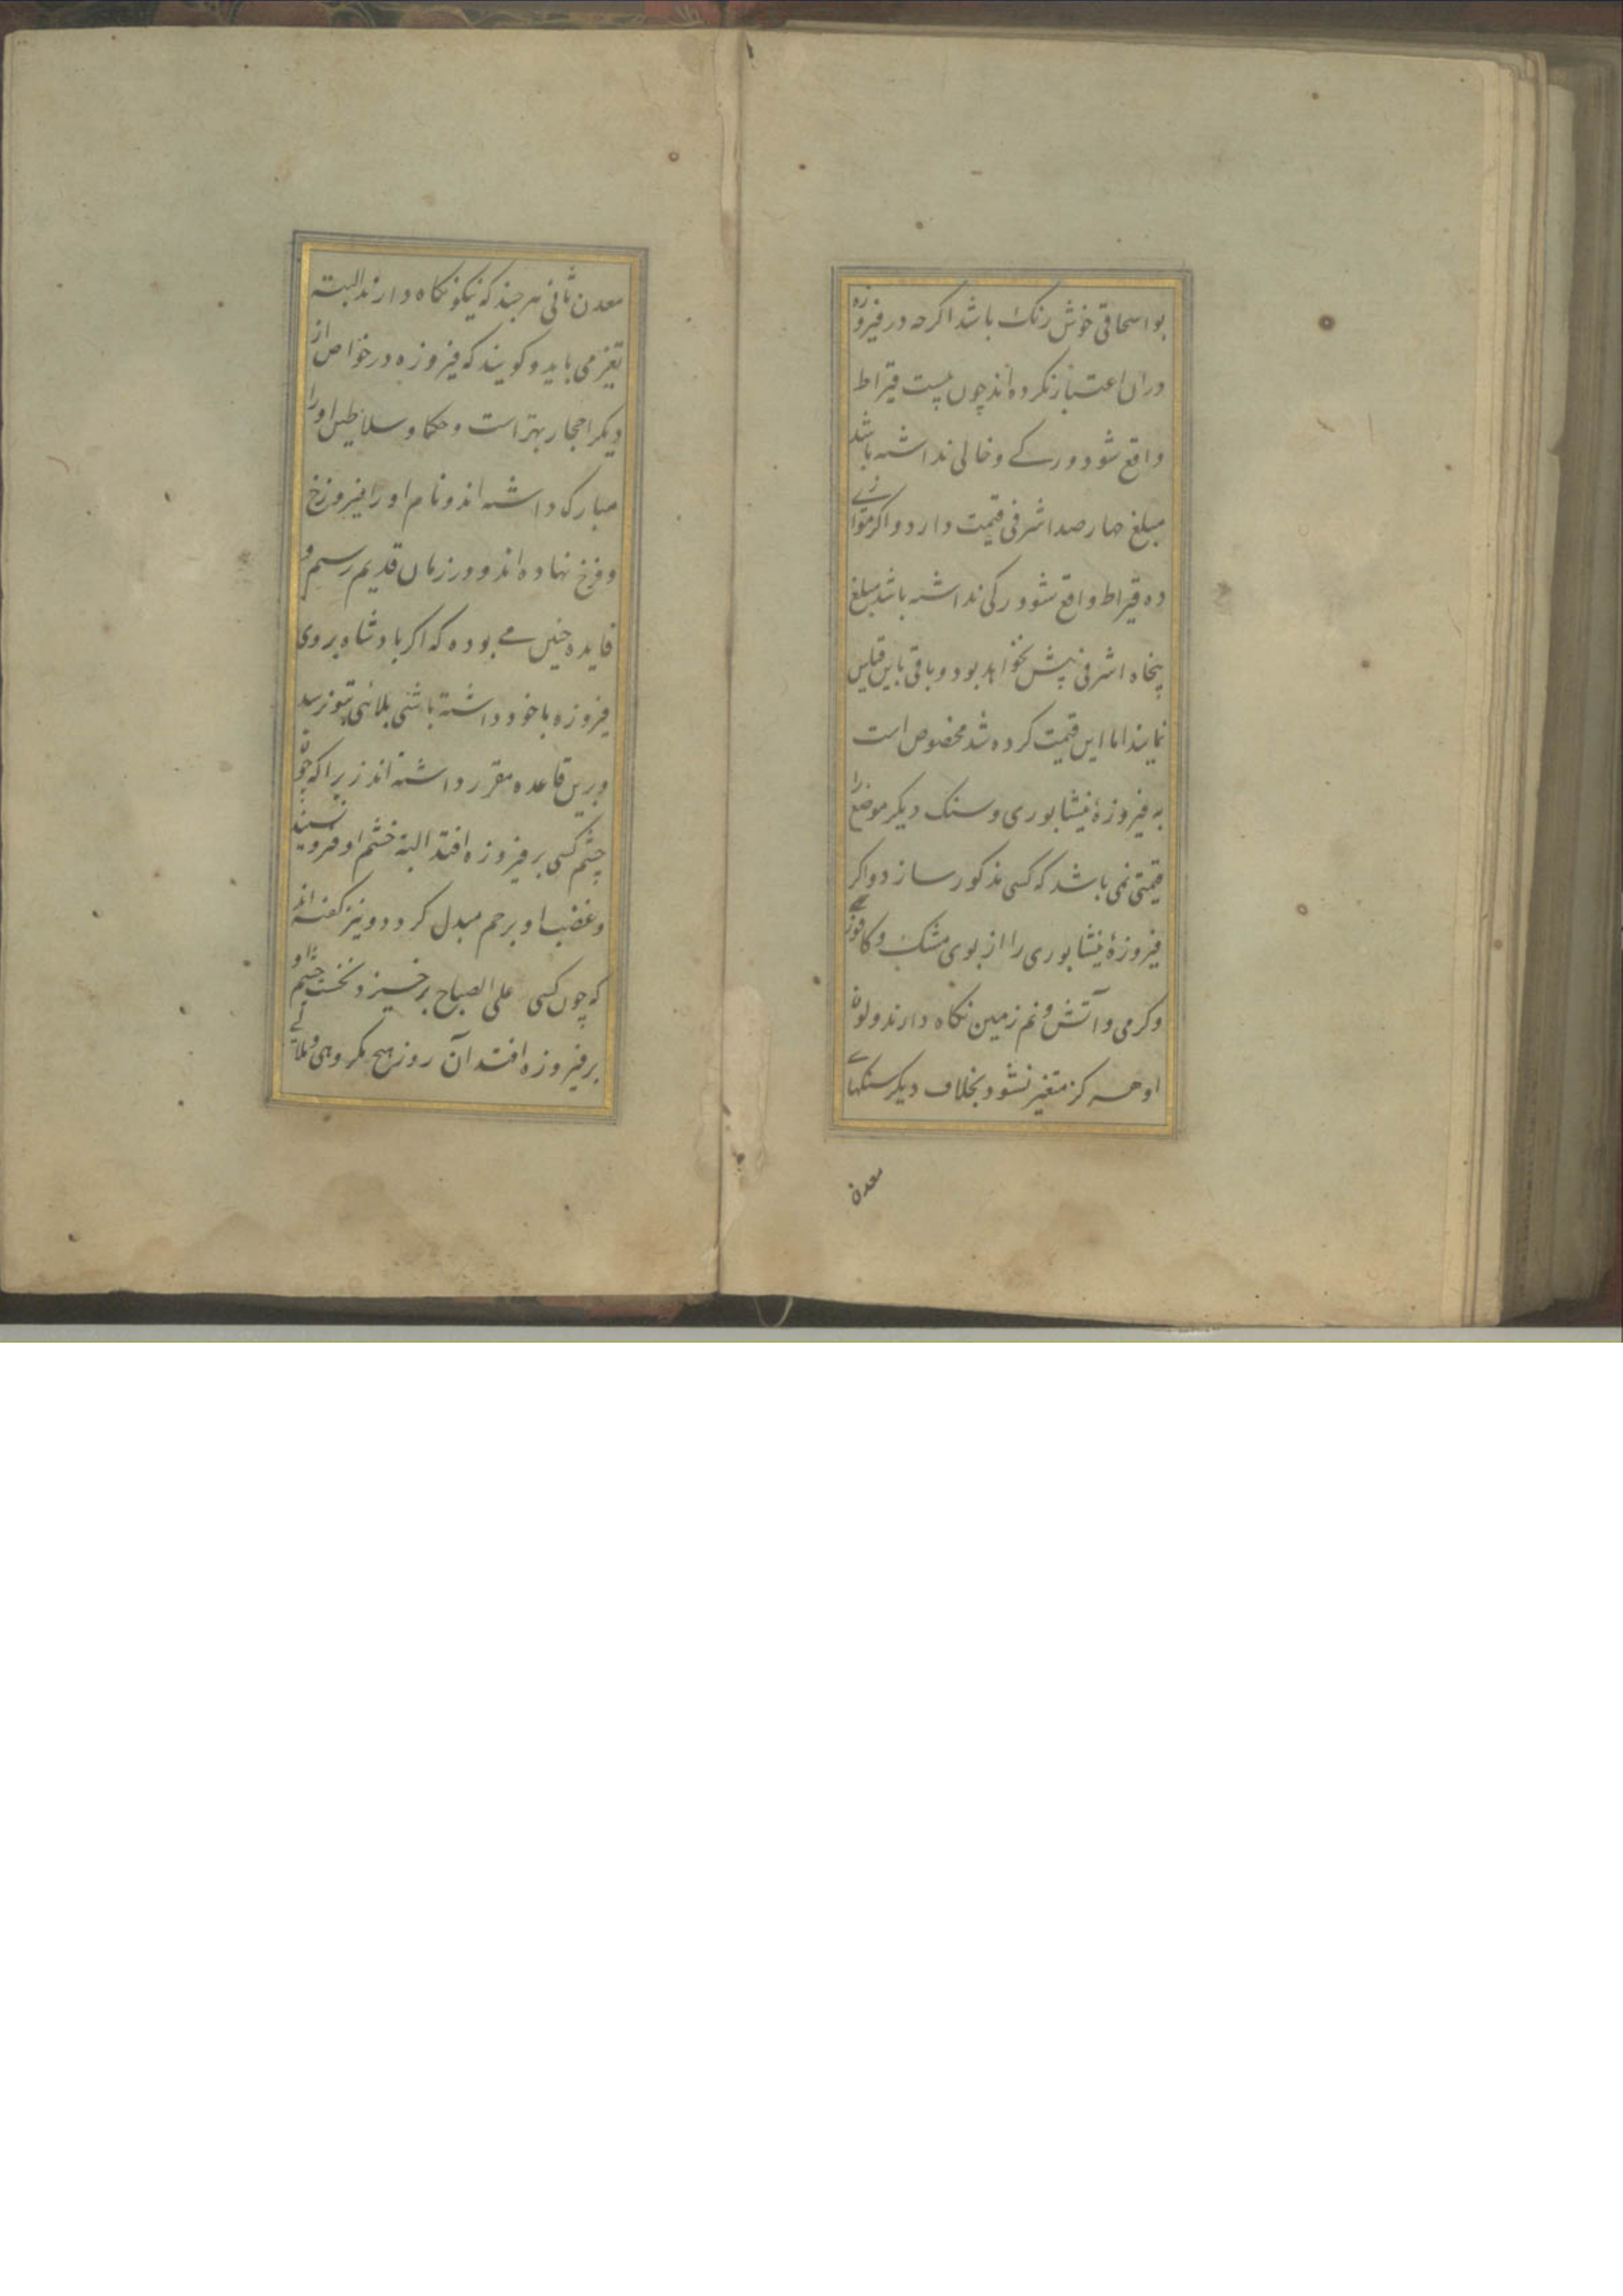 بواسحاقی خوش رنک باشد اکرچه در فیروزه
وزان اعتبار نکرده اند چون بیست قیراط
واقع شود و رکے و خالی نداشته باشد
مبلغ چهارصد اشرفی قیمت دارد و اکر موازے
ده قیراط واقع شود رکی نداشته باشد مبلغ
پنجاه اشرفی پیش نخواهد بود و باقی باین قیاس
نمایند اما این قیمت کرده شد مخصوص است
به فیروزهٔ نیشابوری و سنک دیکر موضع را
قیمتی نمی باشد که کسی مذکور سازد و اکر
فیروزهٔ نیشابوری را از بوی مشک و کافور
و کرمی و آتش و نم زمین نکاه دارند ولون
او هرکز متغیر نشود بخلاف دیکر سنکهاے
معدن
معدن ثانی هرچند که نیکو نکاه دارند البته
تغیر می یابد و کویند که فیروزه در خواص از
دیکر احجار بهتر است و حکما و سلاطین او را
مبارک داشته اند و نام او را فیروزخ
و فرخ نهاده اند و در زمان قدیم رسم و
قایده چنین مے بوده که اکر بادشاه بروی
فیروزه با خود داشته باشی بلائی بتو نرسد
و برین قاعده مقرر داشته اند زیراکه چون
چشم کسی بر فیروزه افتد البته خشم او فرو نشیند
و غضب او برحم مبدل کردد و نیز کفته اند
که چون کسی علی الصباح برخیزد نخست چشم او
بر فیروزه افتد آن روز هیچ مکروهی و بلائے